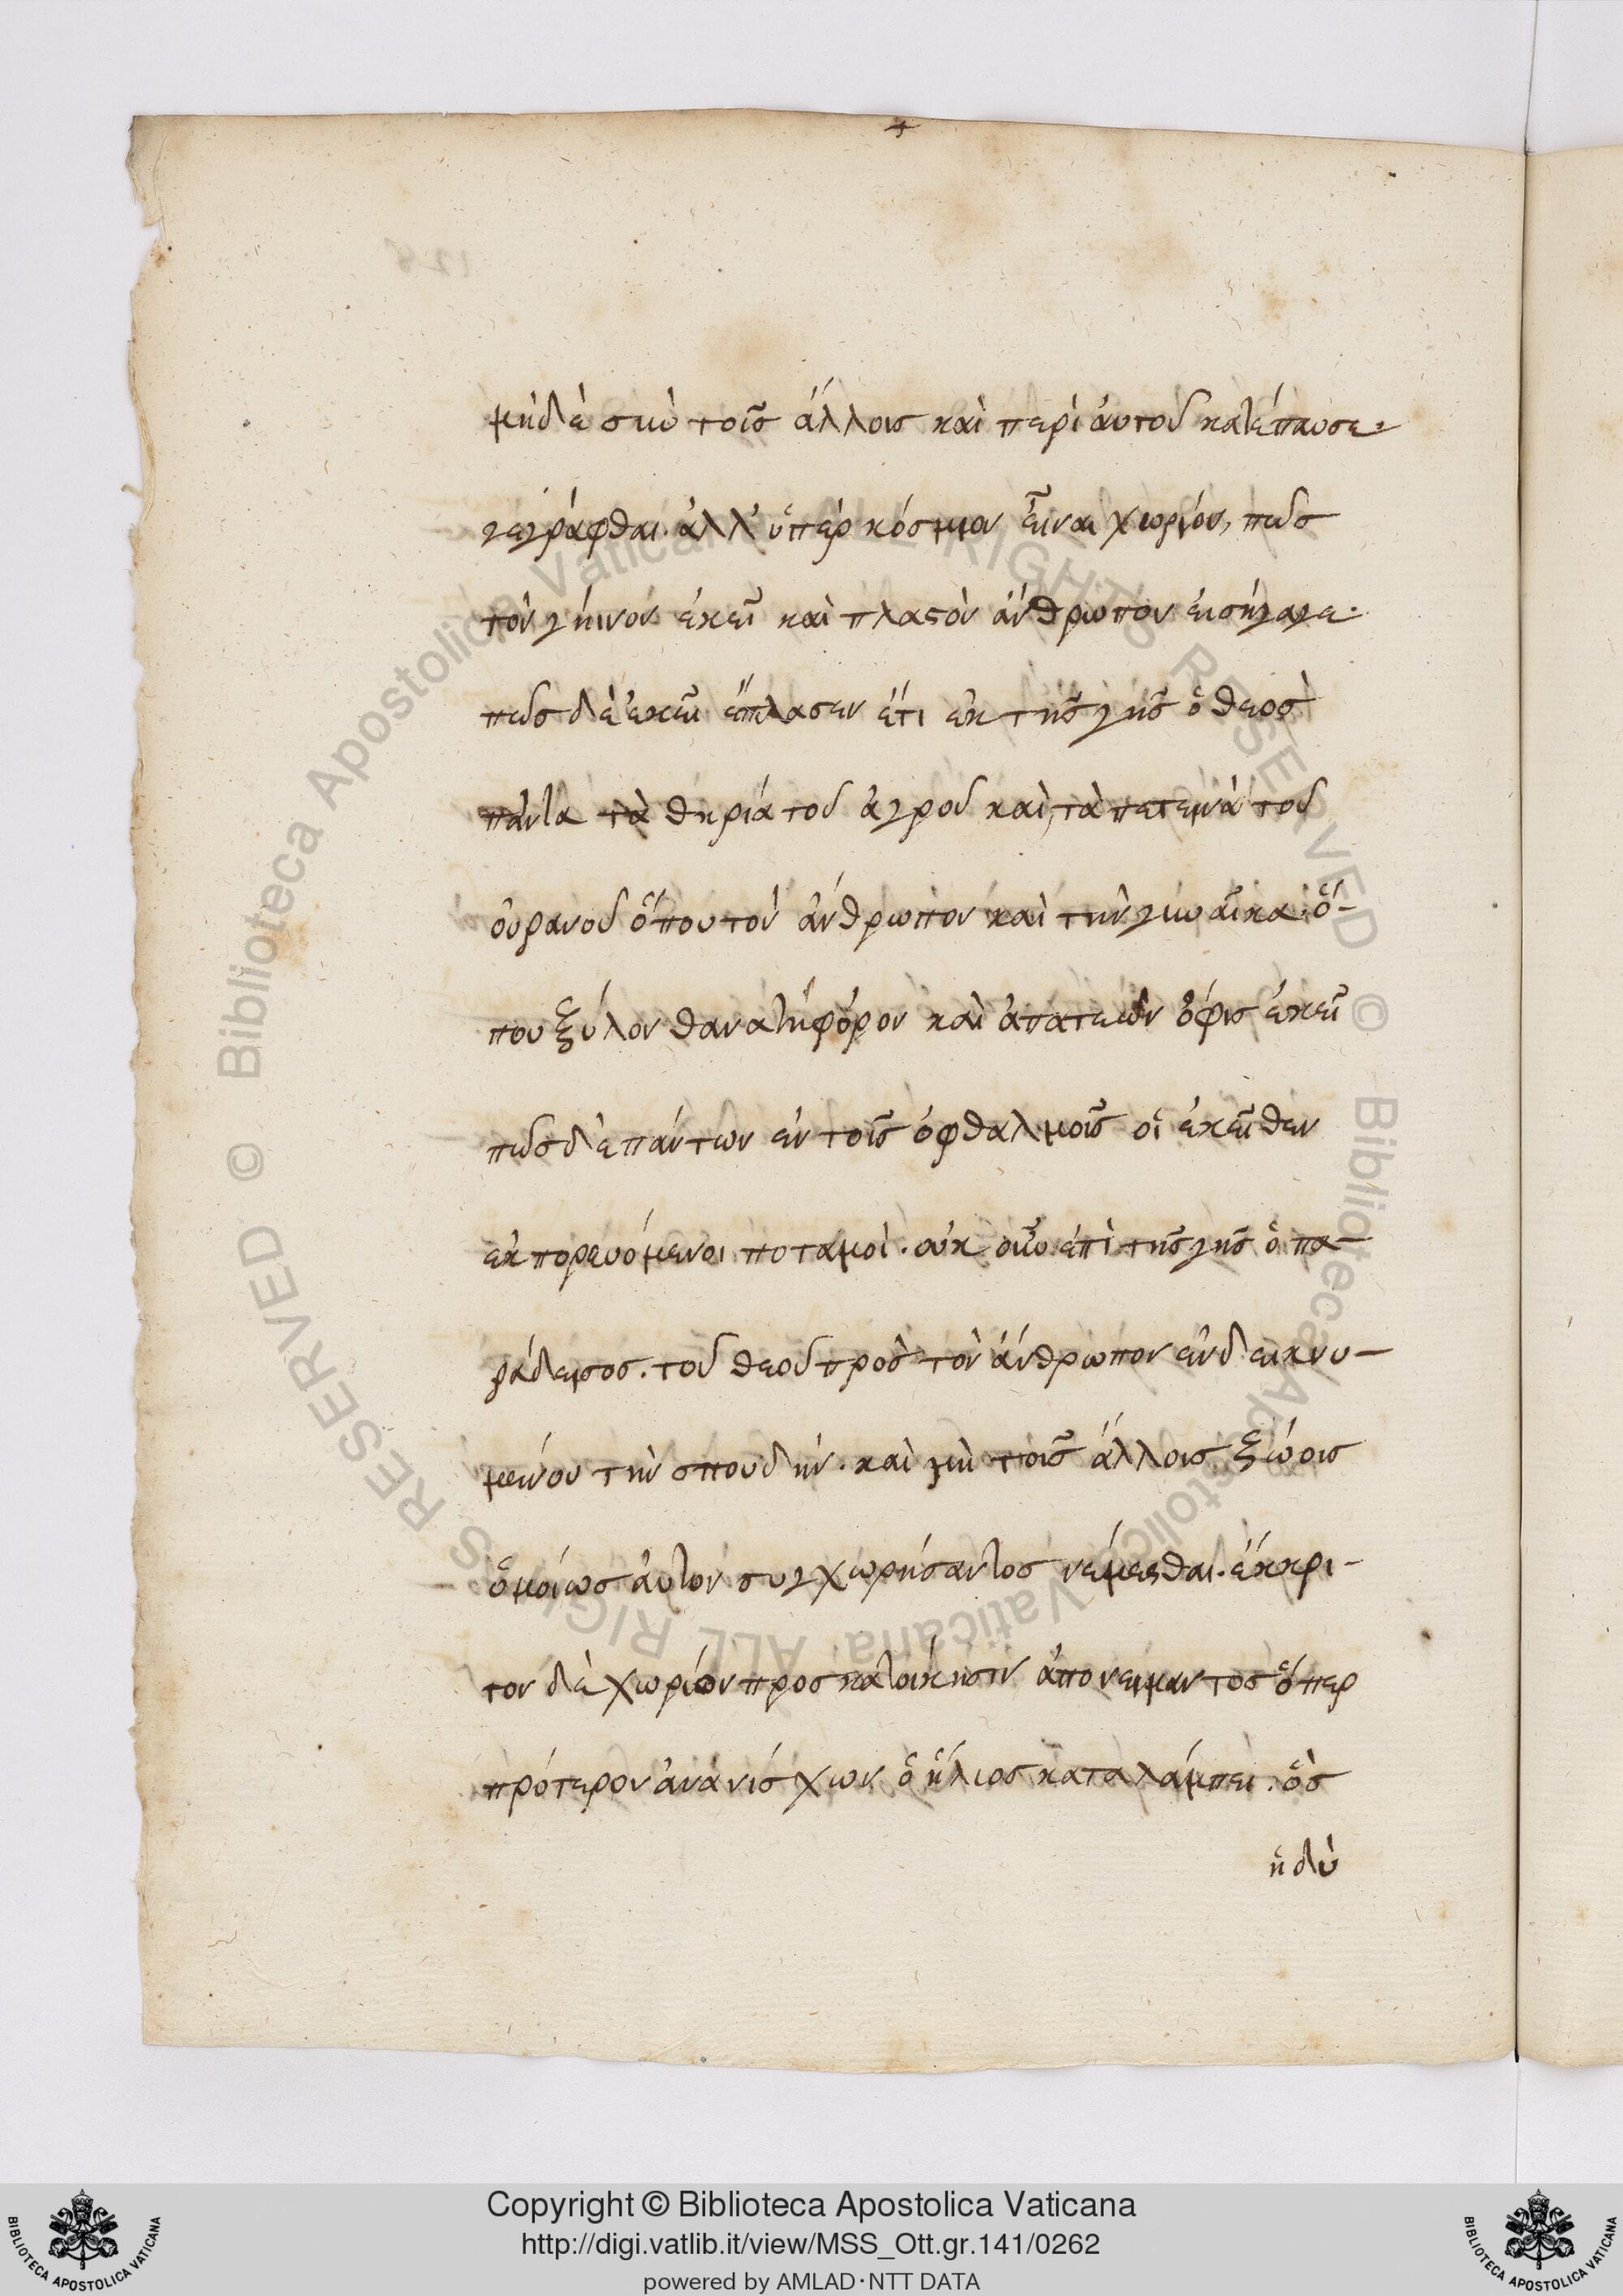 μηδὲ σὺν τοῖς ἄλλοις καὶ περὶ ἀυτοῦ κατέπαυσε.
γεγράφθαι. ἀλλ' ὑπὲρ κόσμιον εἶναι χωρίον, πῶς
τὸν γήινον ἐκεῖ καὶ πλαστὸν ἄνθρωπον ἐισήγαγε.
πῶς δὲ ἐκεῖ ἔπλασεν ἔτι ἐκ τῆς γῆς ὁ θεὸς
πάντα τὰ θηρία τοῦ ἀγροῦ καὶ τὰ πετεινὰ τοῦ
ὀυρανοῦ ὅπου τὸν ἄνθρωπον καὶ τὴν γυναῖκα. ὅ-
που ξύλον θανατηφόρον καὶ ἀπατεὼν ὄφις ἐκεῖ
πῶς δὲ πάντων ἐν τοῖς ὀφθαλμοῖς οἱ ἐκεῖθεν
ἐκπορευόμενοι ποταμοί. οὐκ οὖν ἐπὶ τῆς γῆς ὁ πα-
ράδεισος. τοῦ θεοῦ πρὸς τὸν ἄνθρωπον ἐνδεικνυ-
μένου τὴν σπουδήν. καὶ μὴ τοῖς ἄλλοις ξώοις
ὁμοίως ἀυτὸν συγχωρήσαντος νέμεσθαι. ἔκκρι-
τον δὲ χωρίον προς κατοίκησιν ἀπονείμαντος ὅπερ
πρότερον ἀνανίσχων ὁ ἥλιος καταλάμπει. ὃς
ἡδὺ
Copyright © Biblioteca Apostolica Vaticana
http://digi.vatlib.it/view/MSS_Ott.gr.141/0262
powered by AMLAD·NTT DATA